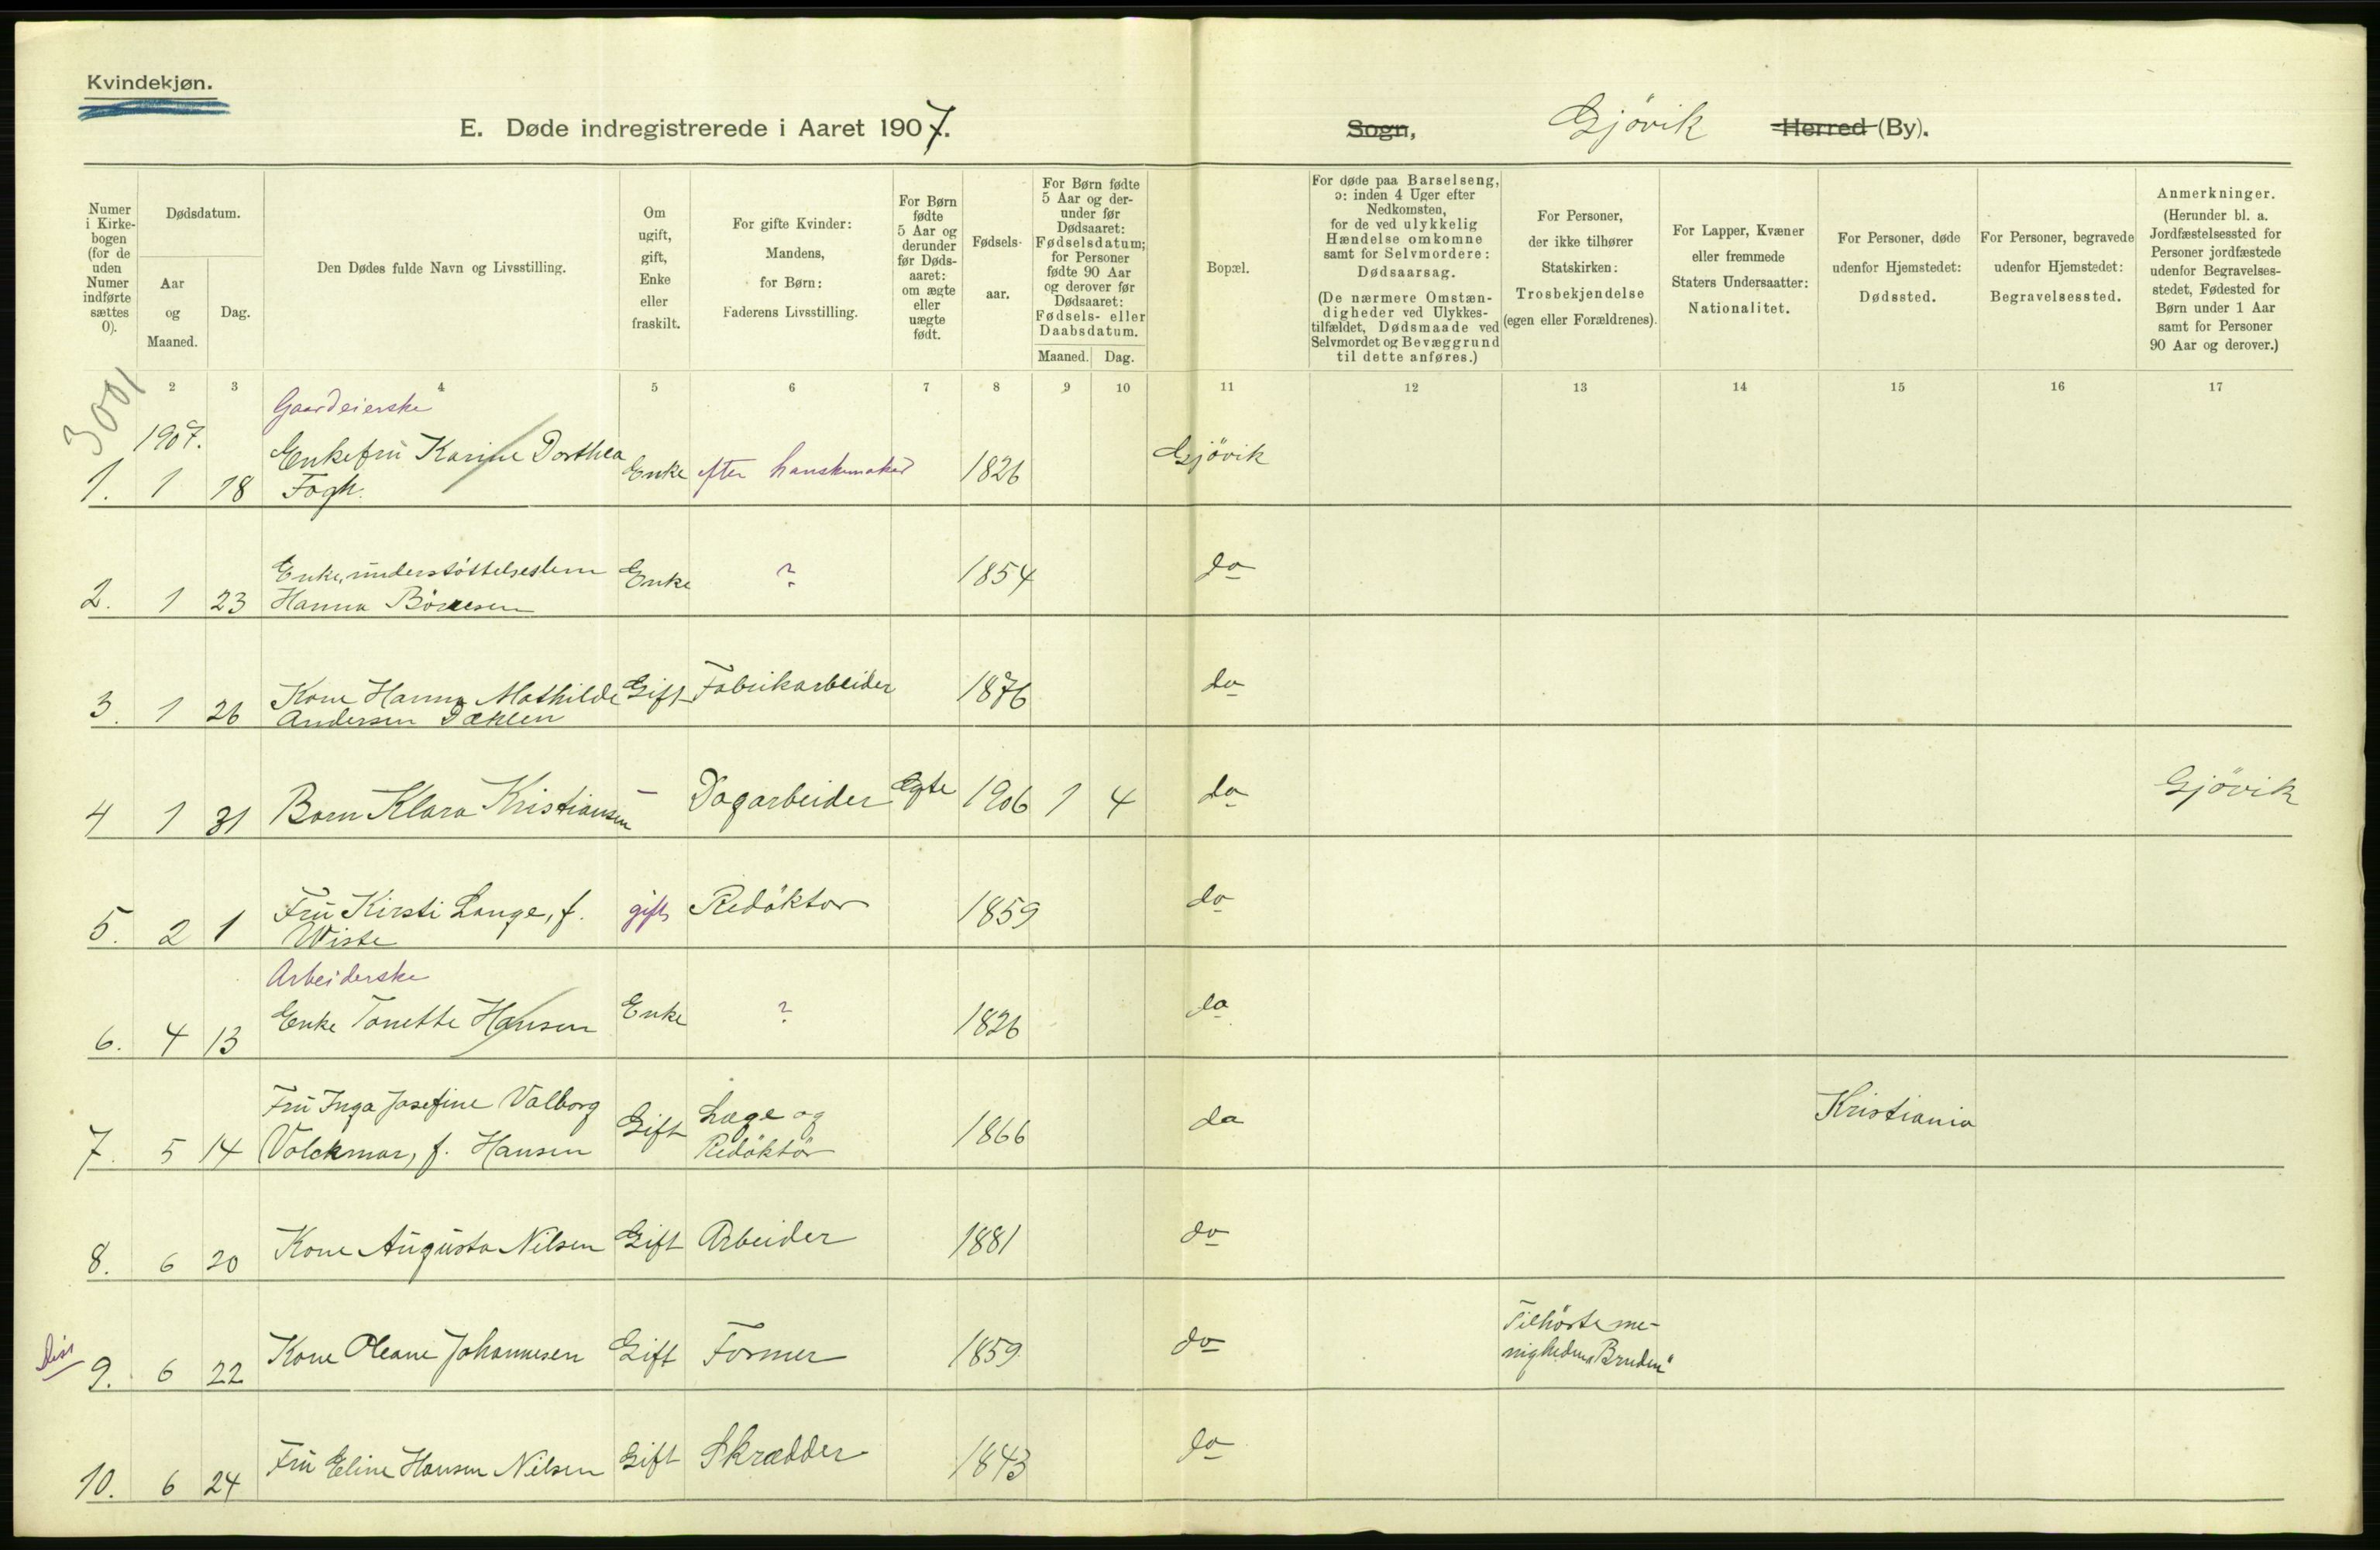 Kvindekjøn.
E. Døde indregistrerede i Aaret 1907.
Sogn, Gjövik Herred (By).
Numer i Kirkebogen (for de uden Numer indførte sættes 0).
Dødsdatum.
Aar og Maaned.
Dag.
Den Dødes fulde Navn og Livsstilling.
Om ugift, gift, Enke eller fraskilt.
For gifte Kvinder: Mandens, for Børn: Faderens Livsstilling.
For Børn fødte 5 Aar og derunder før Dødsaaret: om ægte eller uægte født.
Fødselsaar.
For Børn fødte 5 Aar og derunder før Dødsaaret: Fødselsdatum; for Personer fødte 90 Aar og derover før Dødsaaret: Fødsels- eller Daabsdatum.
Maaned. Dag.
Bopæl.
For døde paa Barselseng, ɔ: inden 4 Uger efter Nedkomsten, for de ved ulykkelig Hændelse omkomne samt for Selvmordere: Dødsaarsag.
(De nærmere Omstændigheder ved Ulykkestilfældet, Dødsmaade ved Selvmordet og Bevæggrund til dette anføres.)
For Personer, der ikke tilhører Statskirken: Trosbekjendelse (egen eller Forældrenes).
For Lapper, Kvæner eller fremmede Staters Undersaatter: Nationalitet.
For Personer, døde udenfor Hjemstedet: Dødssted.
For Personer, begravede udenfor Hjemstedet: Begravelsessted.
Anmerkninger.
(Herunder bl. a. Jordfæstelsessted for Personer jordfæstede udenfor Begravelsesstedet, Fødested for Børn under 1 Aar samt for Personer 90 Aar og derover.)
2 3 4 5 6 7 8 9 10 11 12 13 14 15 16 17
3001
1907.
Gaardeierske
1. 1 18 Enkefru Karine Dorthea Fogh. Enke efter hanskemaker 1826 Gjövik
2. 1 23 Enke, understöttelseslem Hanna Börresen Enke ? 1854 do
3. 1 26 Kone Hanna Mathilde Andersen Dæhlen Gift Fabrikarbeider 1876 do
4 1 31 Barn Klara Kristiansen — Dagarbeider Egte 1906 1 4 do Gjövik
5. 2 1 Fru Kirsti Lange, f. Wiste gift Redaktör 1859 do
Arbeiderske
6. 4 13 Enke Tonette Hansen Enke ? 1826 do
7. 5 14 Fru Inga Josefine Valborg Volckmar, f. Hansen Gift Læge og Redaktör 1866 do Kristiania
8. 6 20 Kone Augusta Nilsen Gift Arbeider 1881 do
Diss
9. 6 22 Kone Oleane Johannesen Gift Former 1859 do Tilhörte menigheden „Bruden"
10. 6 24 Fru Eline Hansen Nilsen Gift Skrædder 1843 do